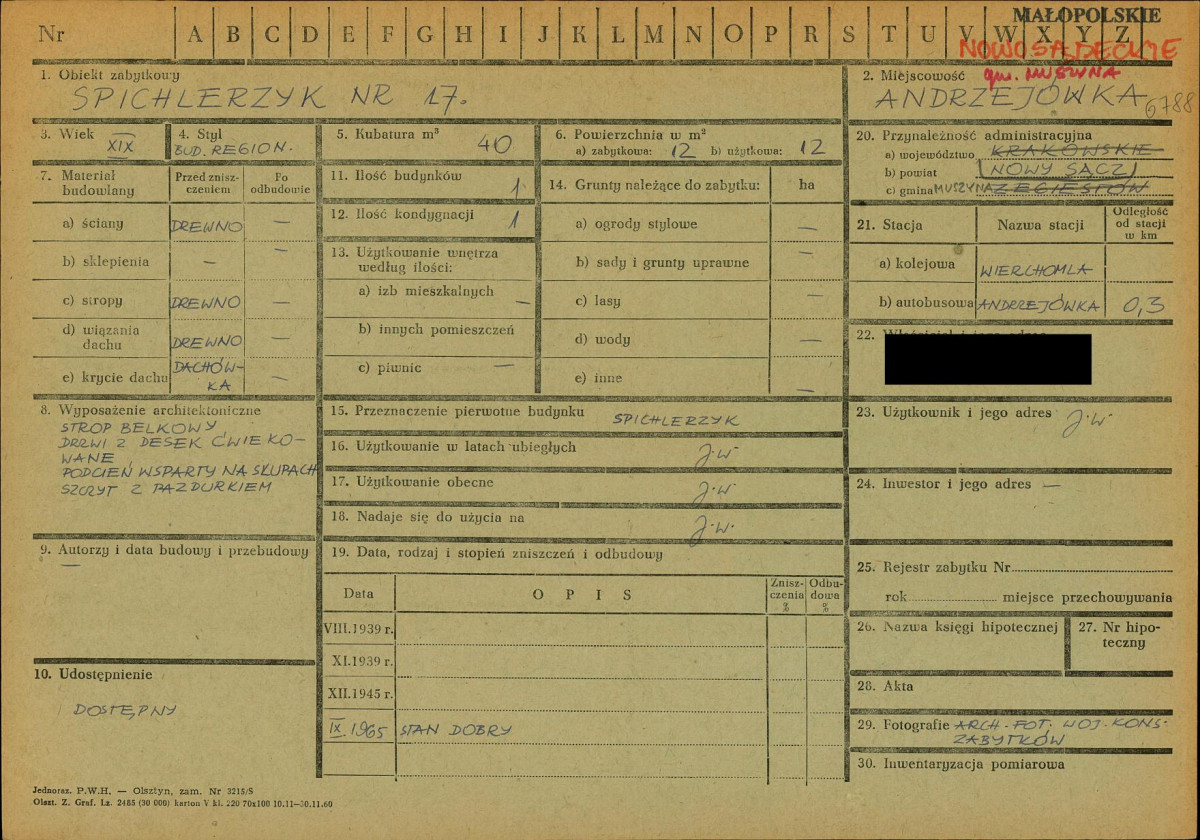 MAŁOPOLSKIE
Nr A B C D E F G H I J K L M N O P R S T U V W X Y Z
NOWOSĄDECKIE
gm. MUSZYNA
1. Obiekt zabytkowy
SPICHLERZYK NR 17.
2. Miejscowość
ANDRZEJÓWKA
6788
3. Wiek
XIX
4. Styl
BUD. REGION.
5. Kubatura m³
40
6. Powierzchnia w m²
a) zabytkowa: 12 b) użytkowa: 12
7. Materiał budowlany
Przed zniszczeniem
Po odbudowie
a) ściany DREWNO —
b) sklepienia — —
c) stropy DREWNO —
d) wiązania dachu DREWNO —
e) krycie dachu DACHÓW-
KA —
8. Wyposażenie architektoniczne
STROP BELKOWY
DRZWI Z DESEK ĆWIEKO-
WANE
PODCIEŃ WSPARTY NA SŁUPACH
SZCZYT Z PAZDURKIEM
9. Autorzy i data budowy i przebudowy
—
10. Udostępnienie
DOSTĘPNY
11. Ilość budynków 1
12. Ilość kondygnacji 1
13. Użytkowanie wnętrza
według ilości:
a) izb mieszkalnych —
b) innych pomieszczeń
c) piwnic —
14. Grunty należące do zabytku: ha
a) ogrody stylowe —
b) sady i grunty uprawne —
c) lasy —
d) wody —
e) inne —
15. Przeznaczenie pierwotne budynku SPICHLERZYK
16. Użytkowanie w latach ubiegłych j.w
17. Użytkowanie obecne j.w
18. Nadaje się do użycia na j.w.
19. Data, rodzaj i stopień zniszczeń i odbudowy
Data OPIS Zniszczenia % Odbudowa %
VIII.1939 r.
XI.1939 r.
XII.1945 r.
IX.1965 STAN DOBRY
20. Przynależność administracyjna
a) województwo KRAKOWSKIE
b) powiat NOWY SĄCZ
c) gmina MUSZYNA ŻEGIESTÓW
21. Stacja Nazwa stacji Odległość od stacji w km
a) kolejowa WIERCHOMLA
b) autobusowa ANDRZEJÓWKA 0,3
22.
23. Użytkownik i jego adres j.w
24. Inwestor i jego adres —
25. Rejestr zabytku Nr
rok miejsce przechowywania
26. Nazwa księgi hipotecznej
27. Nr hipo-
teczny
28. Akta
29. Fotografie ARCH. FOT. WOJ. KONS.
ZABYTKÓW
30. Inwentaryzacja pomiarowa
Jednoraz. P.W.H. — Olsztyn, zam. Nr 3215/S
Olszt. Z. Graf. Lz. 2485 (30 000) karton V kl. 220 70x100 10.11—30.11.60